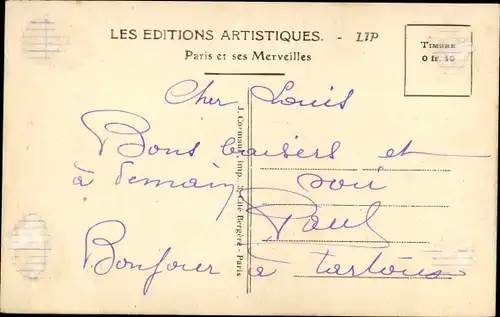 LES EDITIONS ARTISTIQUES. - LIP
Paris et ses Merveilles
TIMBRE
0 fr.
Cher Louis
Bons baisers et
à demain soir
Paul
Bonjour à
J. Cormault, imp., Cité Bergère - Paris